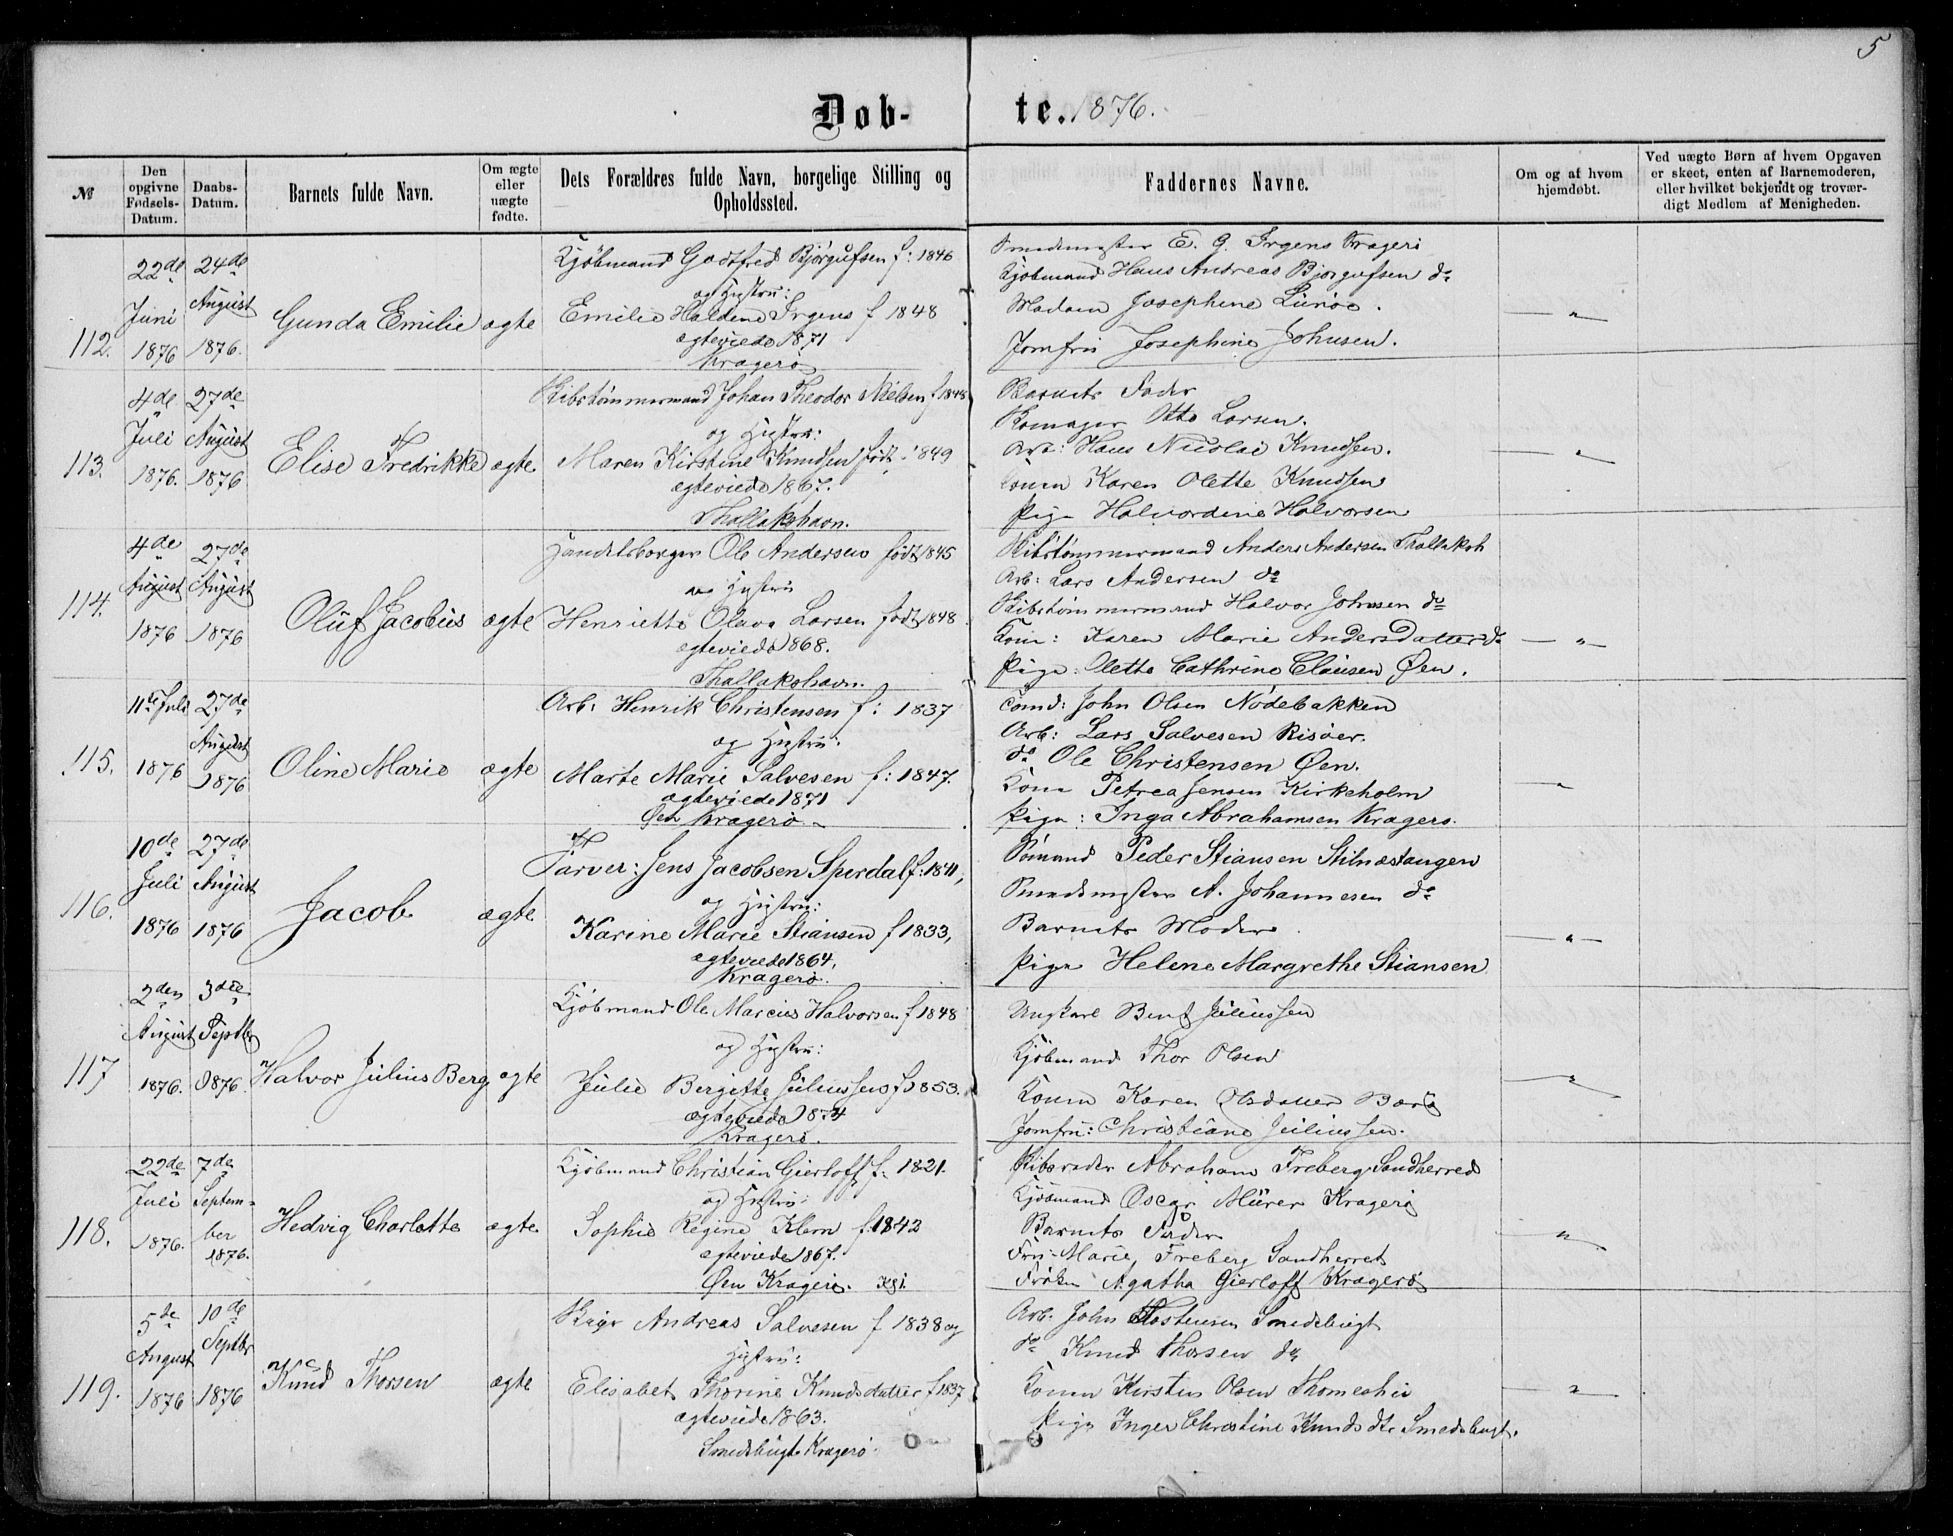 5
Døb-te. 1876.
№
Den opgivne Fødsels-Datum.
Daabs-Datum.
Barnets fulde Navn.
Om ægte eller uægte fødte.
Dets Forældres fulde Navn, borgelige Stilling og Opholdssted.
Faddernes Navne.
Om og af hvem hjemdøbt.
Ved uægte Børn af hvem Opgaven er skeet, enten af Barnemoderen, eller hvilket bekjendt og troværdigt Medlem af Menigheden.
112.
22de Juni 1876
24de August 1876.
Gunda Emilie
ægte
Kjøbmand Godtfred Bjørgufsen f: 1846
og Hustru:
Emilie Haldine Irgens f 1848
ægteviede 1871
Kragerø
Smedmester E. G. Irgens Kragerø
Kjøbmand Hans Andreas Bjørgufsen do
Madam Josephine
Jomfru Josephine Johnsen.
— " —
113.
4de Juli 1876.
27de August 1876
Elise Fredrikke
ægte
Skibstømmermand Johan Theodor Nielsen f 1848
og Hustru:
Maren Kirstine Knudsen født 1849
ægteviede 1867.
Thallakshavn.
Barnets Fader
Otto Larsen.
Arb: Hans Nicolai Knudsen.
Konen Karen Olette Knudsen
Pige Halvordine Halvorsen
— " —
114.
4de August 1876
27de August 1876
Oluf Jacobus
ægte
Handelsborger Ole Andersen født 1845
og Hustru
Henriette Olava Larsen født 1848
ægteviede 1868.
Thallakshavn.
Skibstømmermand Anders Andersen Thallaksh
Arb: Lars Andersen do
Skibstømmermand Halvor Johnsen do
Kone: Karen Marie Andersdatter do
Pige: Olette Cathrine Clausen Øen.
— " —
115.
11te Juli 1876
27de August 1876
Oline Marie
ægte
Arb: Henrik Christensen f: 1837
og Hustru:
Marte Marie Salvesen f: 1847.
ægteviede 1871
Øen Kragerø
Tømd: John Olsen Nødebakken
Arb: Lars Salvesen Risøer.
do Ole Christensen Øen.
Kone Petrea Jensen Kirkeholm
Pige: Inga Abrahamsen Kragerø.
— " —
116.
10de Juli 1876
27de August 1876
Jacob
ægte
Farver: Jens Jacobsen Sperdal f: 1841,
og Hustru:
Karine Marie Stiansen f 1833,
ægteviede 1864,
Kragerø.
Sømand Peder Stiansen Stilnæstangen
Smedmester A. Johannesen do
Barnets Moder
Pige Helene Margrethe Stiansen
— " —
117
2den August 1876.
3die Septbr 1876
Halvor Julius Berg
ægte
Kjøbmand Ole Marcus Halvorsen f 1848
og Hustru:
Julie Bergitte Juliussen f 1853.
ægteviede 1874
Kragerø.
Ungkarl Bent Juliussen
Kjøbmand Thor Olsen
Konen Karen Olsdatter
Jomfru: Christiane Juliussen.
— " —
118.
22de Juli 1876.
7de September 1876.
Hedvig Charlotte
ægte
Kjøbmand Christian Gierloff f: 1821.
og Hustru:
Sophie Regine Klem f. 1842
ægteviede 1867.
Øen Kragerø.
Skibsreder Abraham Freberg Sandherred
Kjøbmand Oscar Mürer Kragerø
Barnets Fader
Fru: Marie Freberg Sandherret
Frøken Agatha Gierloff Kragerø
— " —
119.
5te August 1876
10de Septbr 1876
Knud Thorsen
ægte
Andreas Salvesen f 1838 og
Hustru:
Elisabet Thorine Knudsdatter f 1837
ægteviede 1863.
Smedsbugt Kragerø
Arb. John Smedsbugt
do Knud Thorsen do
Konen Kirsten Olsen
Pige Inger Christine Knudsdtr Smedsbugt.
— " —